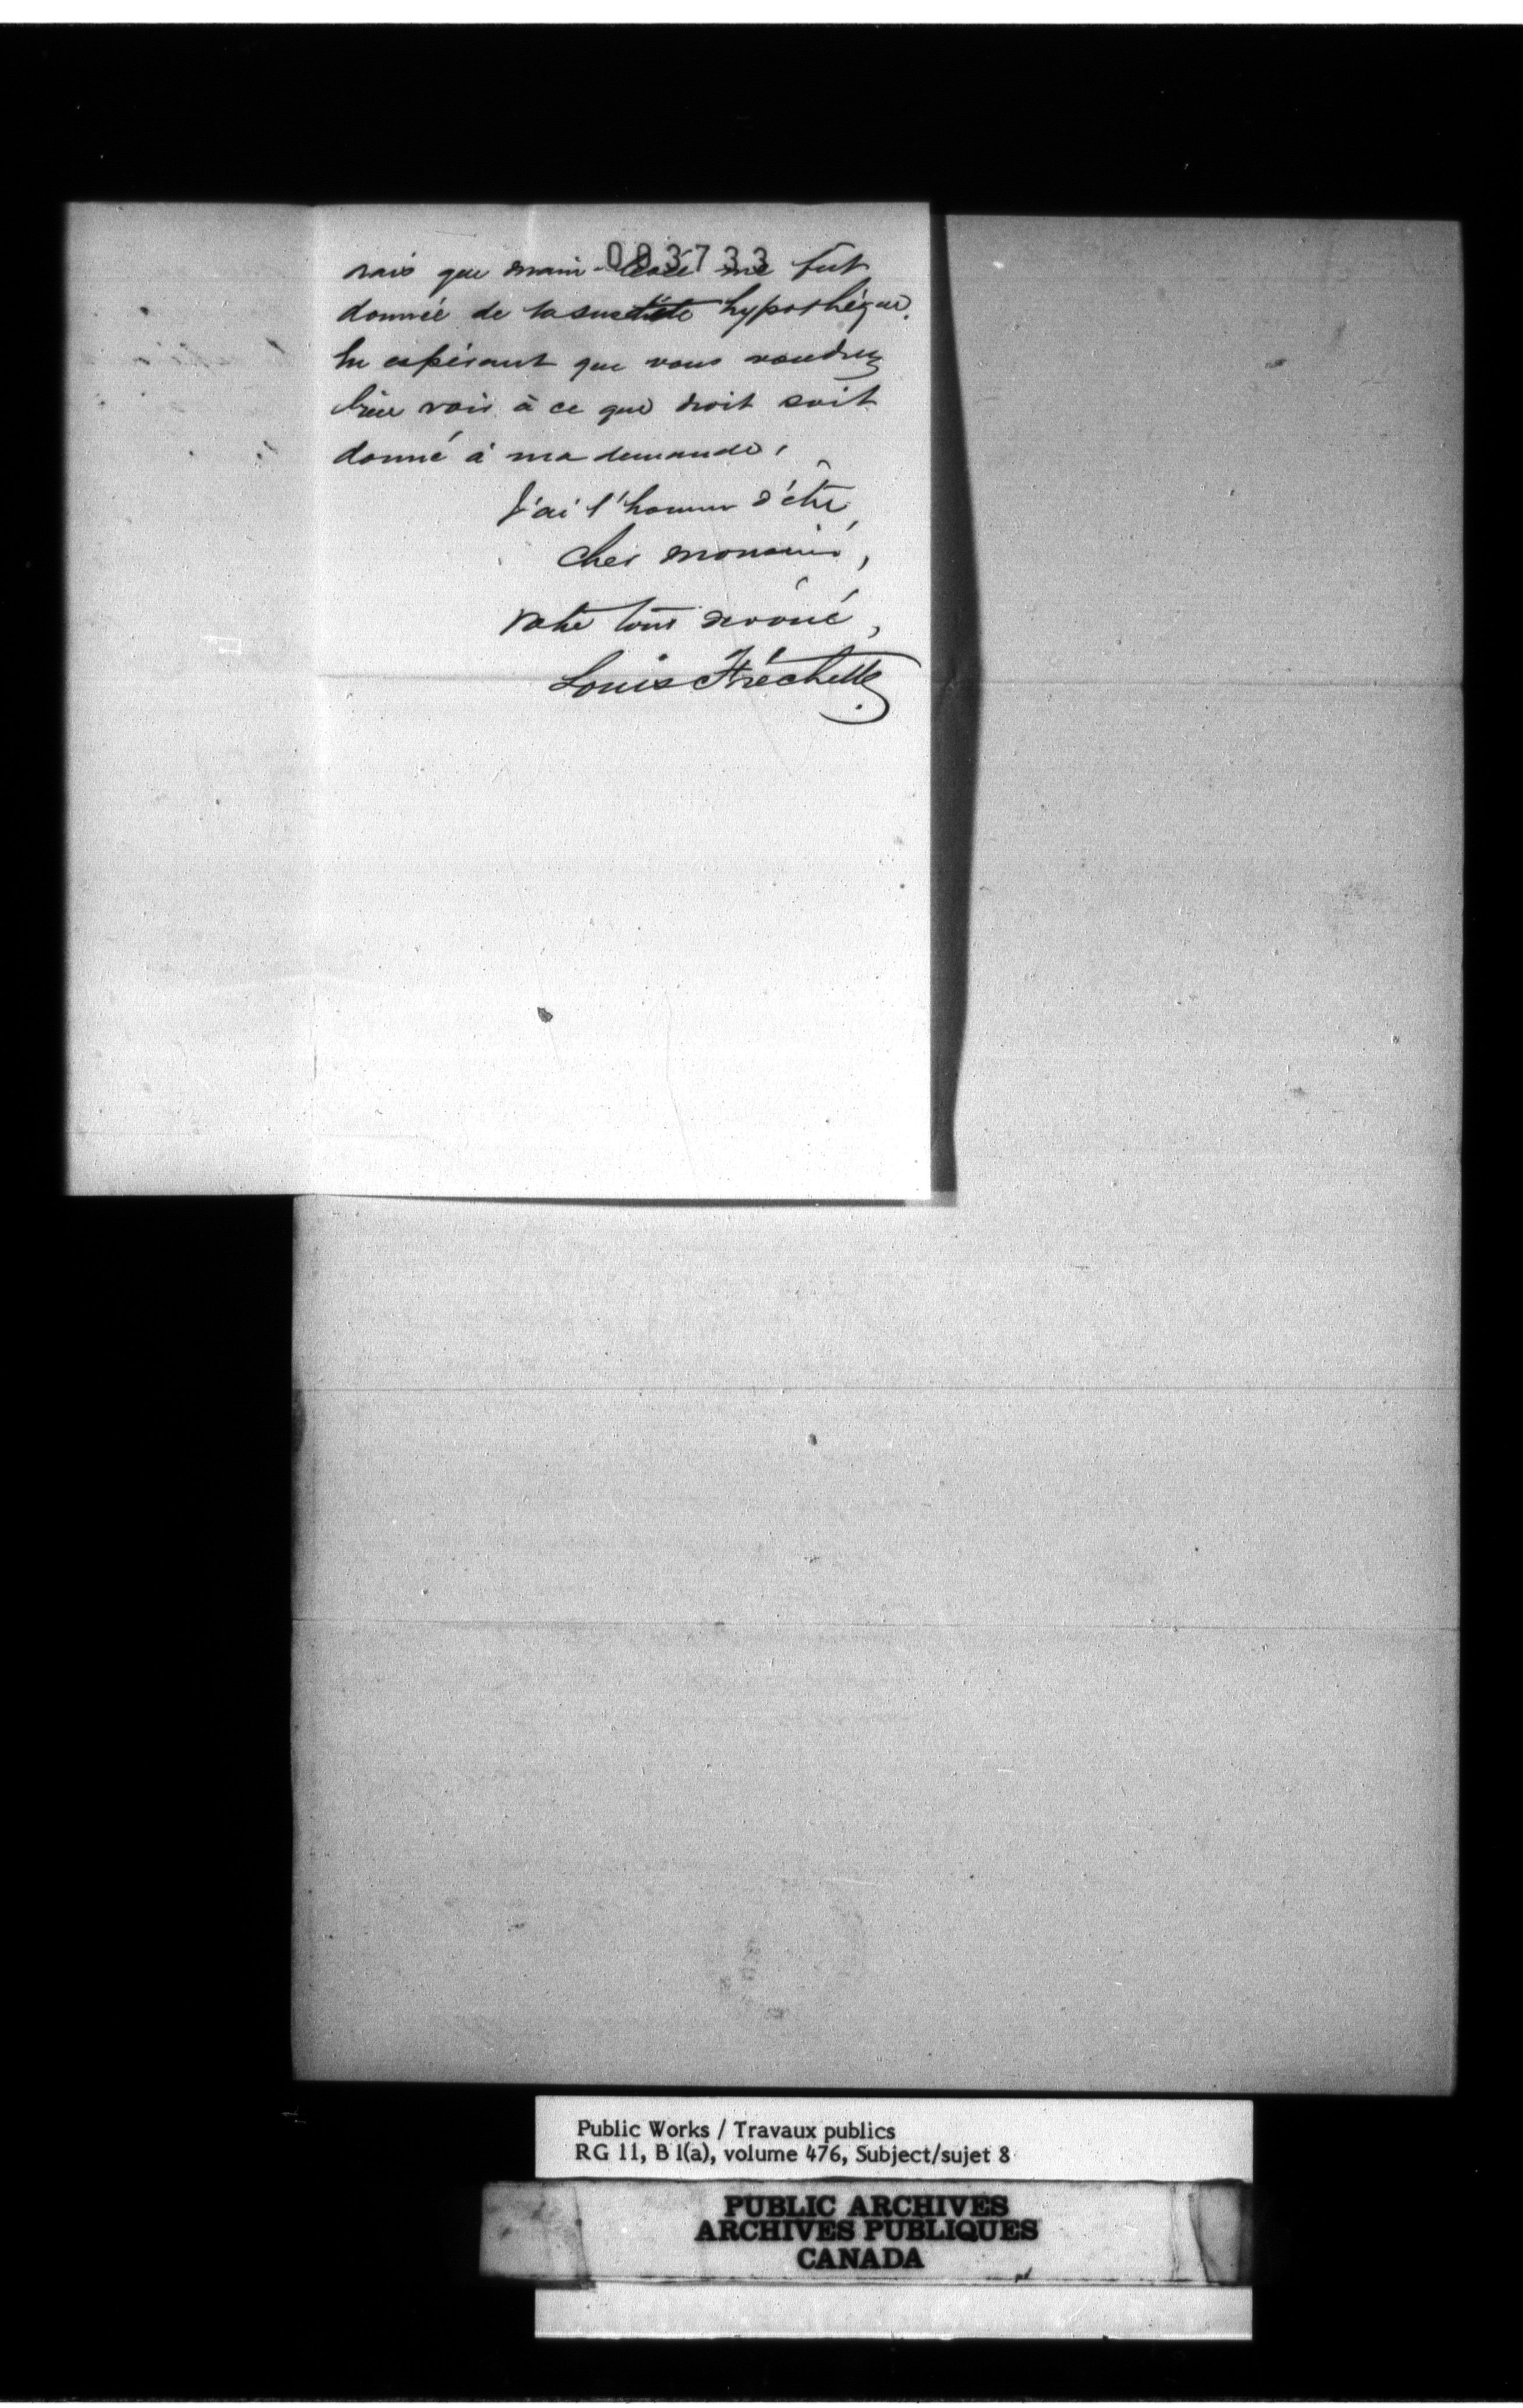 083733
rais que main-levée me fut
donnée de la susdite hypothèque.
En espérant que vous voudrez
bien voir à ce que droit soit
donné à ma demande,
J'ai l'honneur d'être,
Cher monsieur,
Votre tout dévoué,
Louis Fréchette
Public Works / Travaux publics
RG 11, B 1(a), volume 476, Subject/sujet 8
PUBLIC ARCHIVES
ARCHIVES PUBLIQUES
CANADA